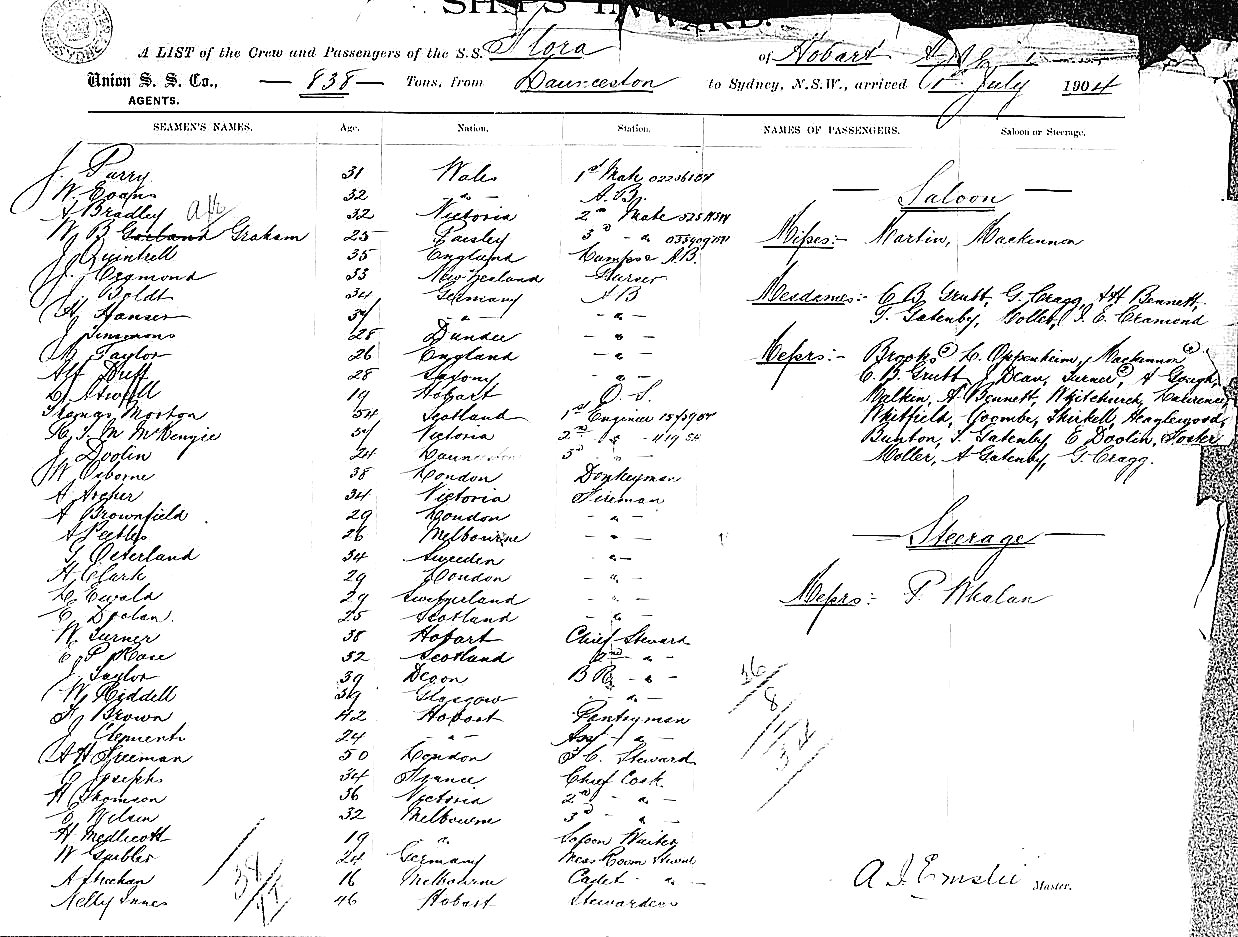 SHIPS INWARD.
A LIST of the Crew and Passengers of the S.S. Flora of Hobart
Union S. S. Co., — 838 — Tons, from Launceston to Sydney, N.S.W., arrived July 1904
AGENTS.
SEAMEN'S NAMES. Age. Nation. Station. NAMES OF PASSENGERS. Saloon or Steerage.
J. Parry 31 Wales 1st Mate
W. Evans 32 - " - A.B.
A Bradley 32 Victoria 2nd Mate
W B Garland Graham 25 Paisley 3rd - " -
J Quintrell 35 England Lamps & A.B.
J. Cramond 33 New Zealand Purser
J Boldt 34 Germany A B
Hansen - " - - " -
J Simmons 28 Dundee - " -
Taylor 26 England - " -
Duff 28 Saxony - " -
Atwell 19 Hobart O. S.
Thomas Morton 54 Scotland 1st Engineer
McKenzie Victoria 2nd - " -
J Doolin 24 Launceston 3rd
W Osborne 38 London Donkeyman
A Archer 34 Victoria Fireman
A Brownfield 29 London - " -
A Peebles 26 Melbourne - " -
G Oeterland 34 Sweden - " -
H Clark 29 London - " -
L Ewald 29 Switzerland - " -
E Doolan 25 Scotland - " -
W Turner 38 Hobart Chief Steward
E P Rose 52 Scotland 2nd - " -
J Taylor 39 Devon B R - " -
W Riddell 39 Glasgow - " -
F Brown 42 Hobart Pantryman
J Clements 24 - " - Asst - " -
A H Freeman 50 London F.C. Steward
C Joseph 34 France Chief Cook
H Thomson 36 Victoria 2nd - " -
E Wilson 32 Melbourne 3rd - " -
H Medlicott 19 " Saloon Waiter
W Gaibler 24 Germany Mess Room Steward
A Sheehan 16 Melbourne Cadet - " -
Nelly Innes 46 Hobart Stewardess
— Saloon —
Misses:- Martin, Mackennon
Mesdames:- C B Grutt, G. Cragg, A H Bennett,
T. Gatenby, Gollet, J. E. Cramond
Messrs:- Brooks (2) L. Oppenheim, Mackennon (2)
C B Grutt, J Dean, Turner (2), A Gough,
Malkin, A Bennett, Whitchurch, Lawrence
Whitfield, Coombe, Thirkell, Heaglewood,
Bunton, T. Gatenby, E Doolin, Foster
Moller, A Gatenby, G. Cragg.
— Steerage —
Messrs: P. Whalan
36
8
34
A J Emslie Master.